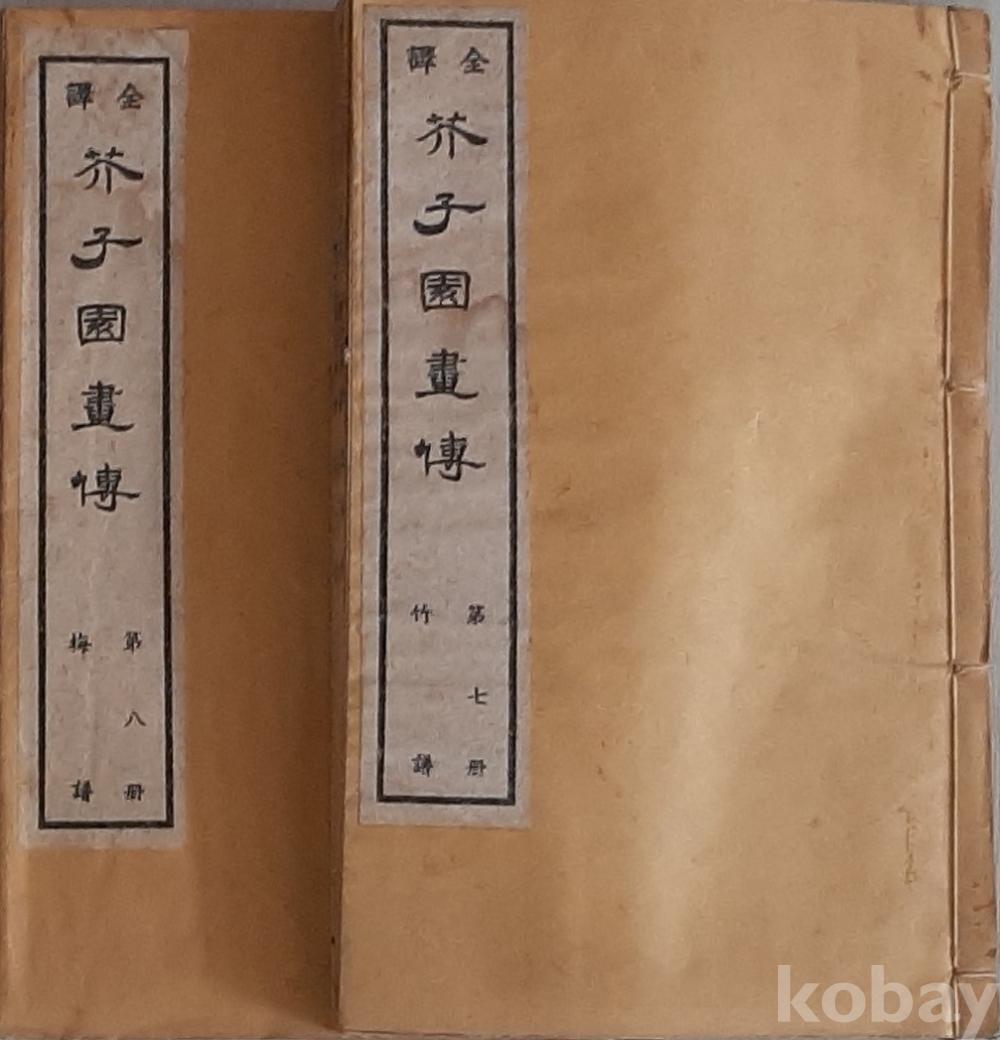 全譯
芥子園畫傳
第七冊
竹譜
全譯
芥子園畫傳
第八冊
梅譜
kobay